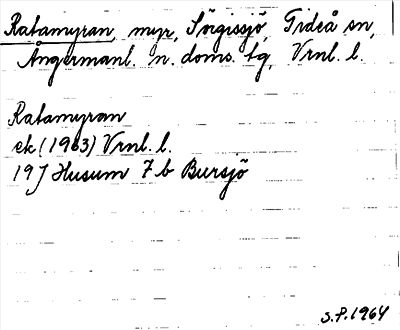 Ratamyran, myr, Sörgissjö, Gideå sn,
Ångermanl. n. doms. tg, Vrnl. l.
Ratamyran
ek (1963) Vrnl. l.
19 J Husum 7 b Bursjö
S.P. 1964